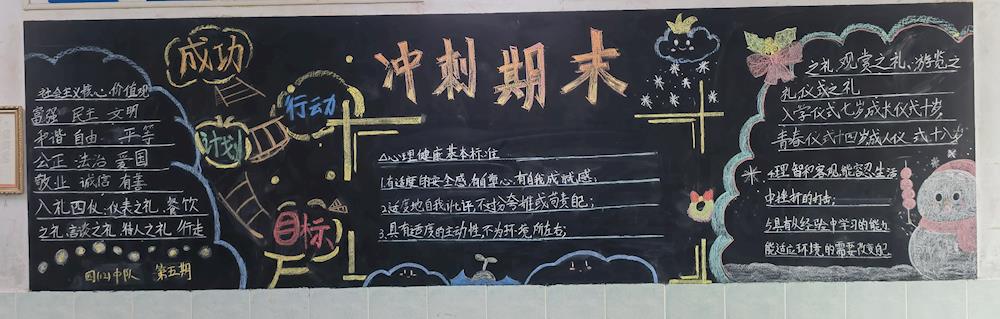 社会主义核心价值观
富强 民主 文明
和谐 自由 平等
公正 法治 爱国
敬业 诚信 友善
入礼四仪、仪表之礼、餐饮
之礼、言谈之礼、待人之礼、行走
四(2)中队 第五期
成功
行动
计划
目标
冲刺期末
心理健康基本标准
1.有适度的安全感,有自尊心,有自我成就感;
2.适度地自我批评,不过分夸耀或苛责自己;
3.具有适度的主动性,不为环境所左右;
之礼、观赏之礼、游览之
礼仪式之礼
入学仪式七岁成长仪式十岁
青春仪式十四岁成人仪式十八岁
4理智积客观,能容忍生活
中挫折的打击;
5具有从经验中学习的能力
能适应环境的需要改变自己.